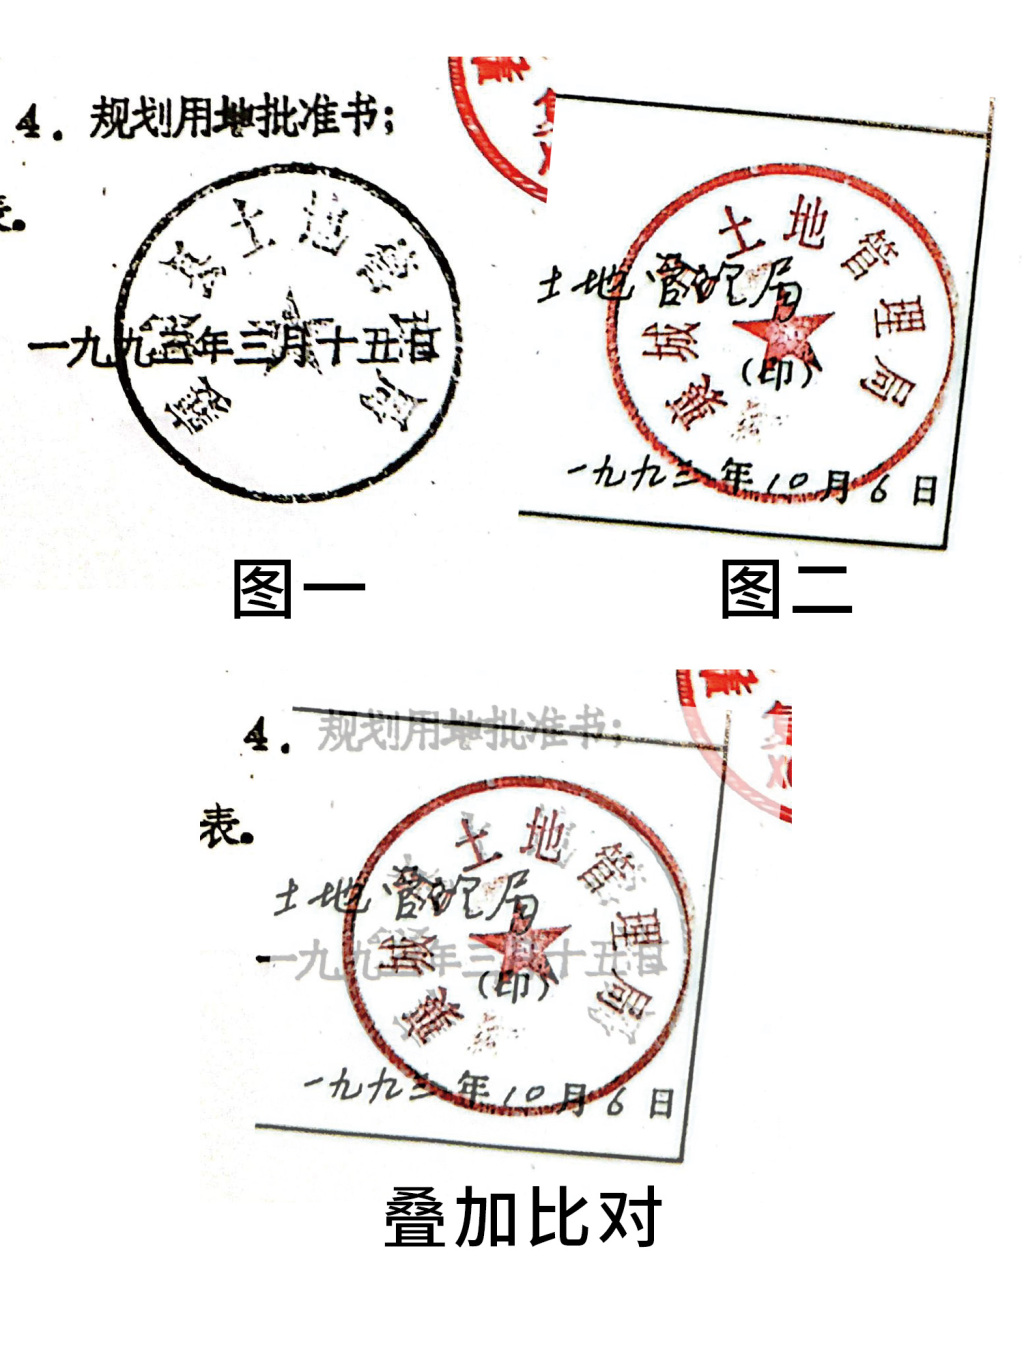 4. 规划用地批准书;
表。
土地管
一九九三年三月十五日
局
土地管理局
城
土地管理局
(印)
一九九三年10月6日
图一
图二
4. 规划用地批准书;
表。
土地管理局
城
土地管理局
一九九三年三月十五日
(印)
一九九三年10月6日
叠加比对